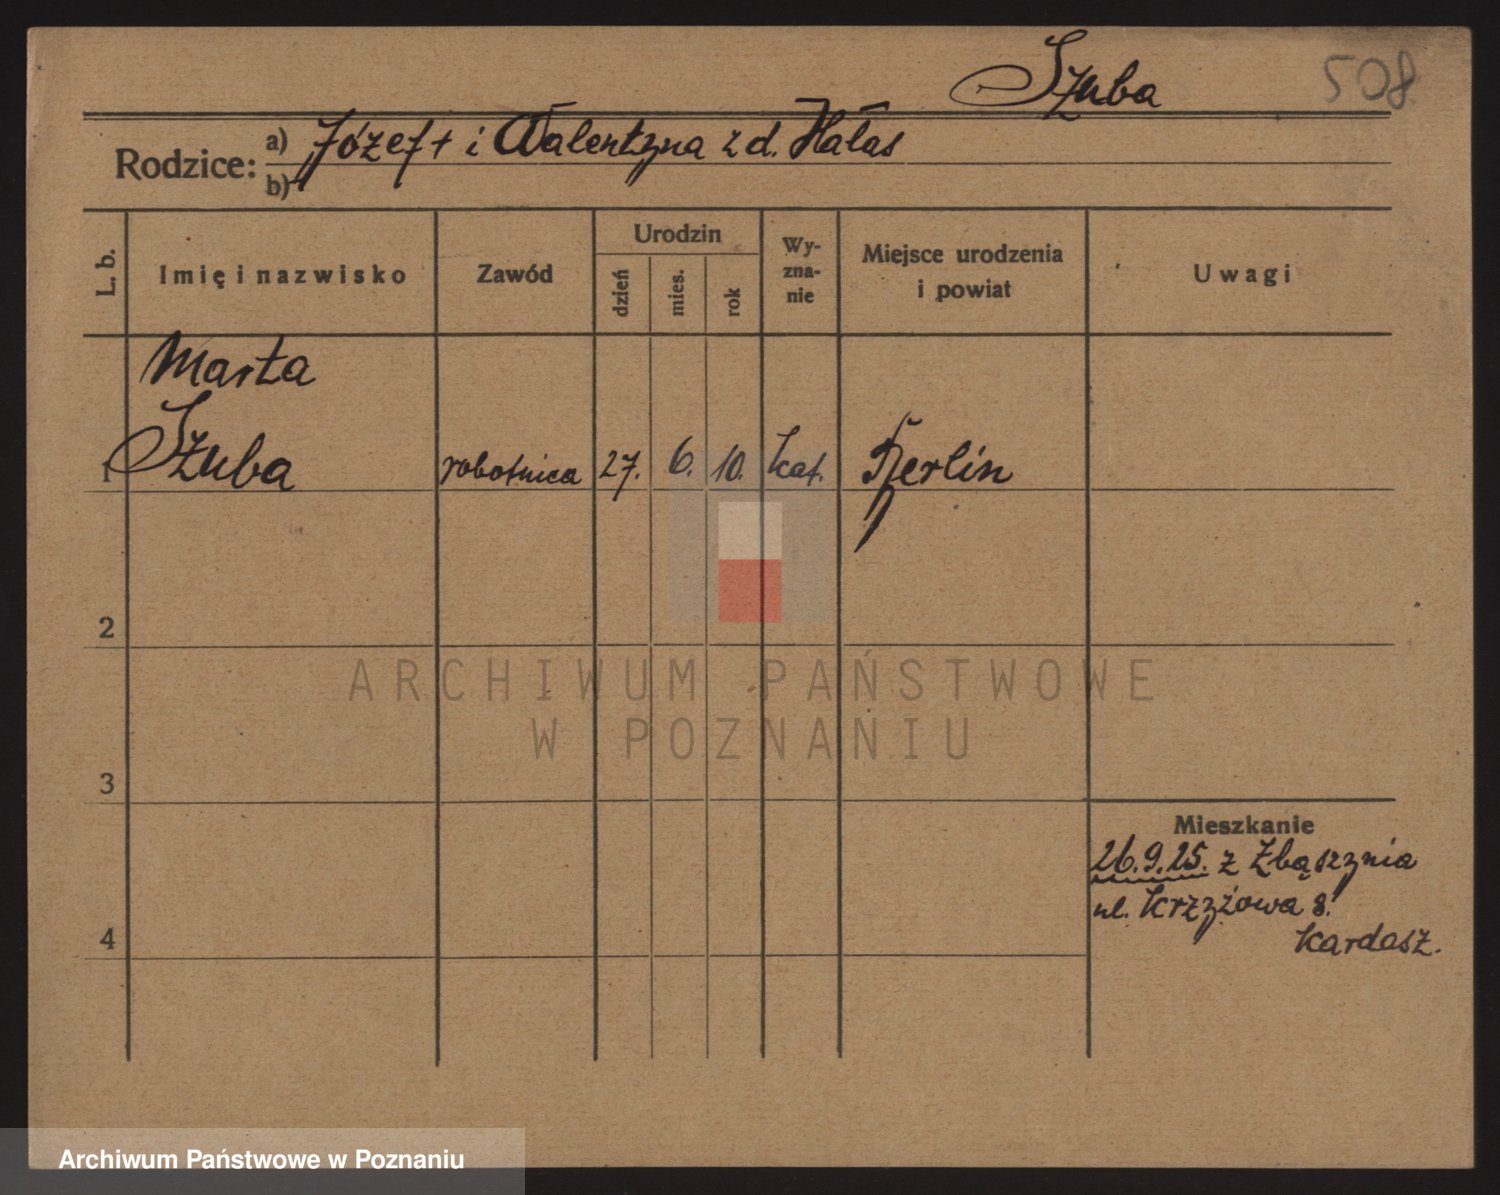 Szuba
508
Rodzice: a) Józef + i Walentyna z d. Hałas
b)
L. b.
Imię i nazwisko
Zawód
Urodzin
dzień
mies.
rok
Wy-
zna-
nie
Miejsce urodzenia
i powiat
Uwagi
Marta
1 Szuba robotnica 27. 6. 10. kat. Berlin
2
3
4
Mieszkanie
26.9.25. z Zbąszynia
ul. Krzyżowa 8.
Kardasz.
ARCHIWUM PAŃSTWOWE
W POZNANIU
Archiwum Państwowe w Poznaniu